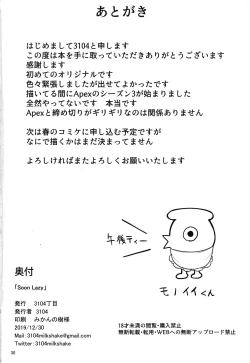 あとがき
はじめまして3104と申します
この度は本を手に取っていただきありがとうございます
感謝します
初めてのオリジナルです
色々緊張しましたが出せてよかったです
描いてる間にApexのシーズン3が始まりました
全然やってないです　本当です
Apexと締め切りがギリギリなのは関係ありません
次は春のコミケに申し込む予定ですが
なにで描くかはまだ決まってません
よろしければまたよろしくお願いいたします
午後ティー
モノイイくん
奥付
「Soon Lazy」
発行　3104丁目
発行者 3104
印刷　みかんの樹様
2019/12/30
Mail: 3104milkshake@gmail.com
Twitter: 3104milkshake
18才未満の閲覧・購入禁止
無断転載・転用・WEBへの無断アップロード禁止
30